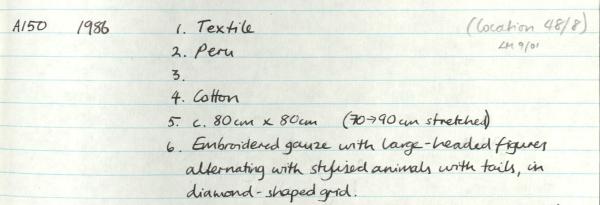 A150 1986 1. Textile (Location 48/8)
2. Peru LM 9/01
3.
4. Cotton
5. c. 80cm x 80cm (70→90cm stretched)
6. Embroidered gauze with large-headed figures
alternating with stylised animals with tails, in
diamond-shaped grid.